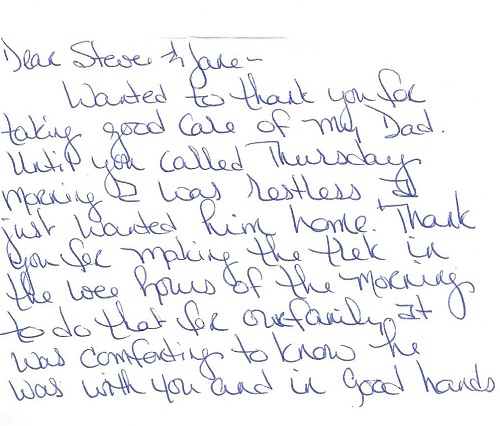 Dear Steve & Jane -
Wanted to thank you for
taking good care of my Dad.
Until you called Thursday
morning I was restless I
just wanted him home. Thank
you for making the trek in
the wee hours of the morning
to do that for our family, It
was comforting to know he
was with you and in good hands